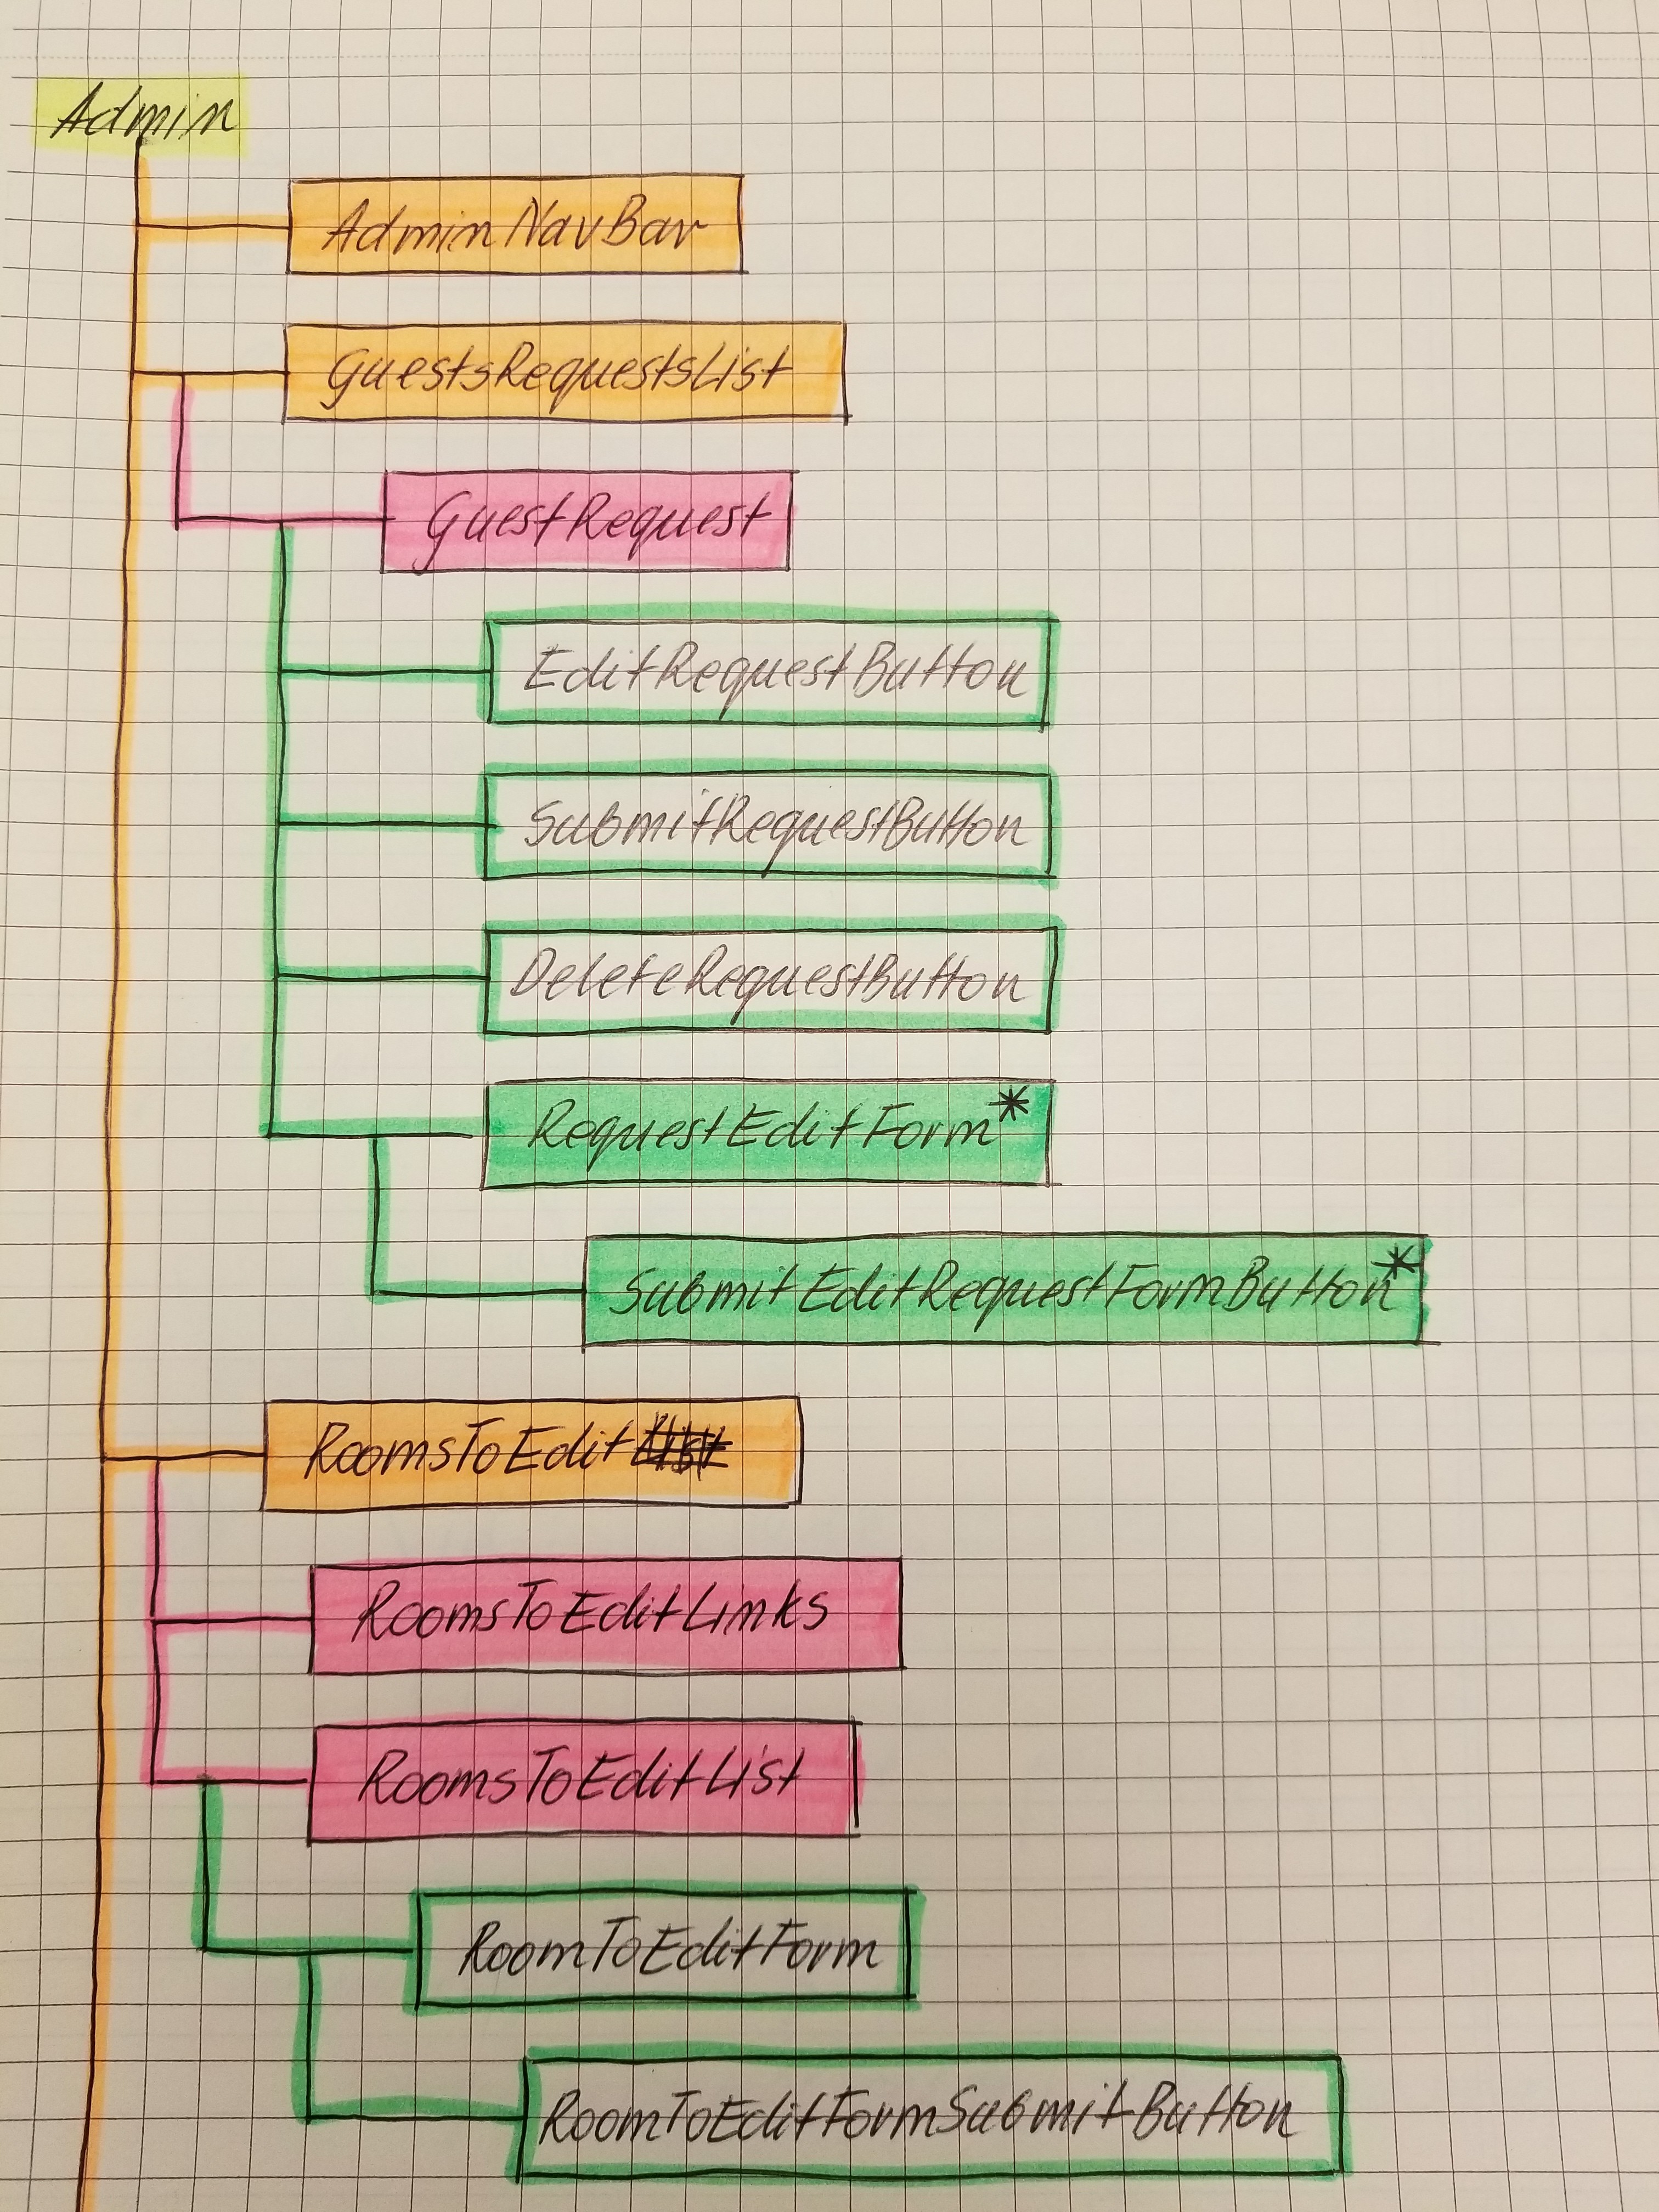 Admin
AdminNavBar
GuestsRequestsList
GuestRequest
EditRequestButton
SubmitRequestButton
DeleteRequestButton
RequestEditForm*
SubmitEditRequestFormButton*
RoomsToEdit
RoomsToEditLinks
RoomsToEditList
RoomToEditForm
RoomToEditFormSubmitButton